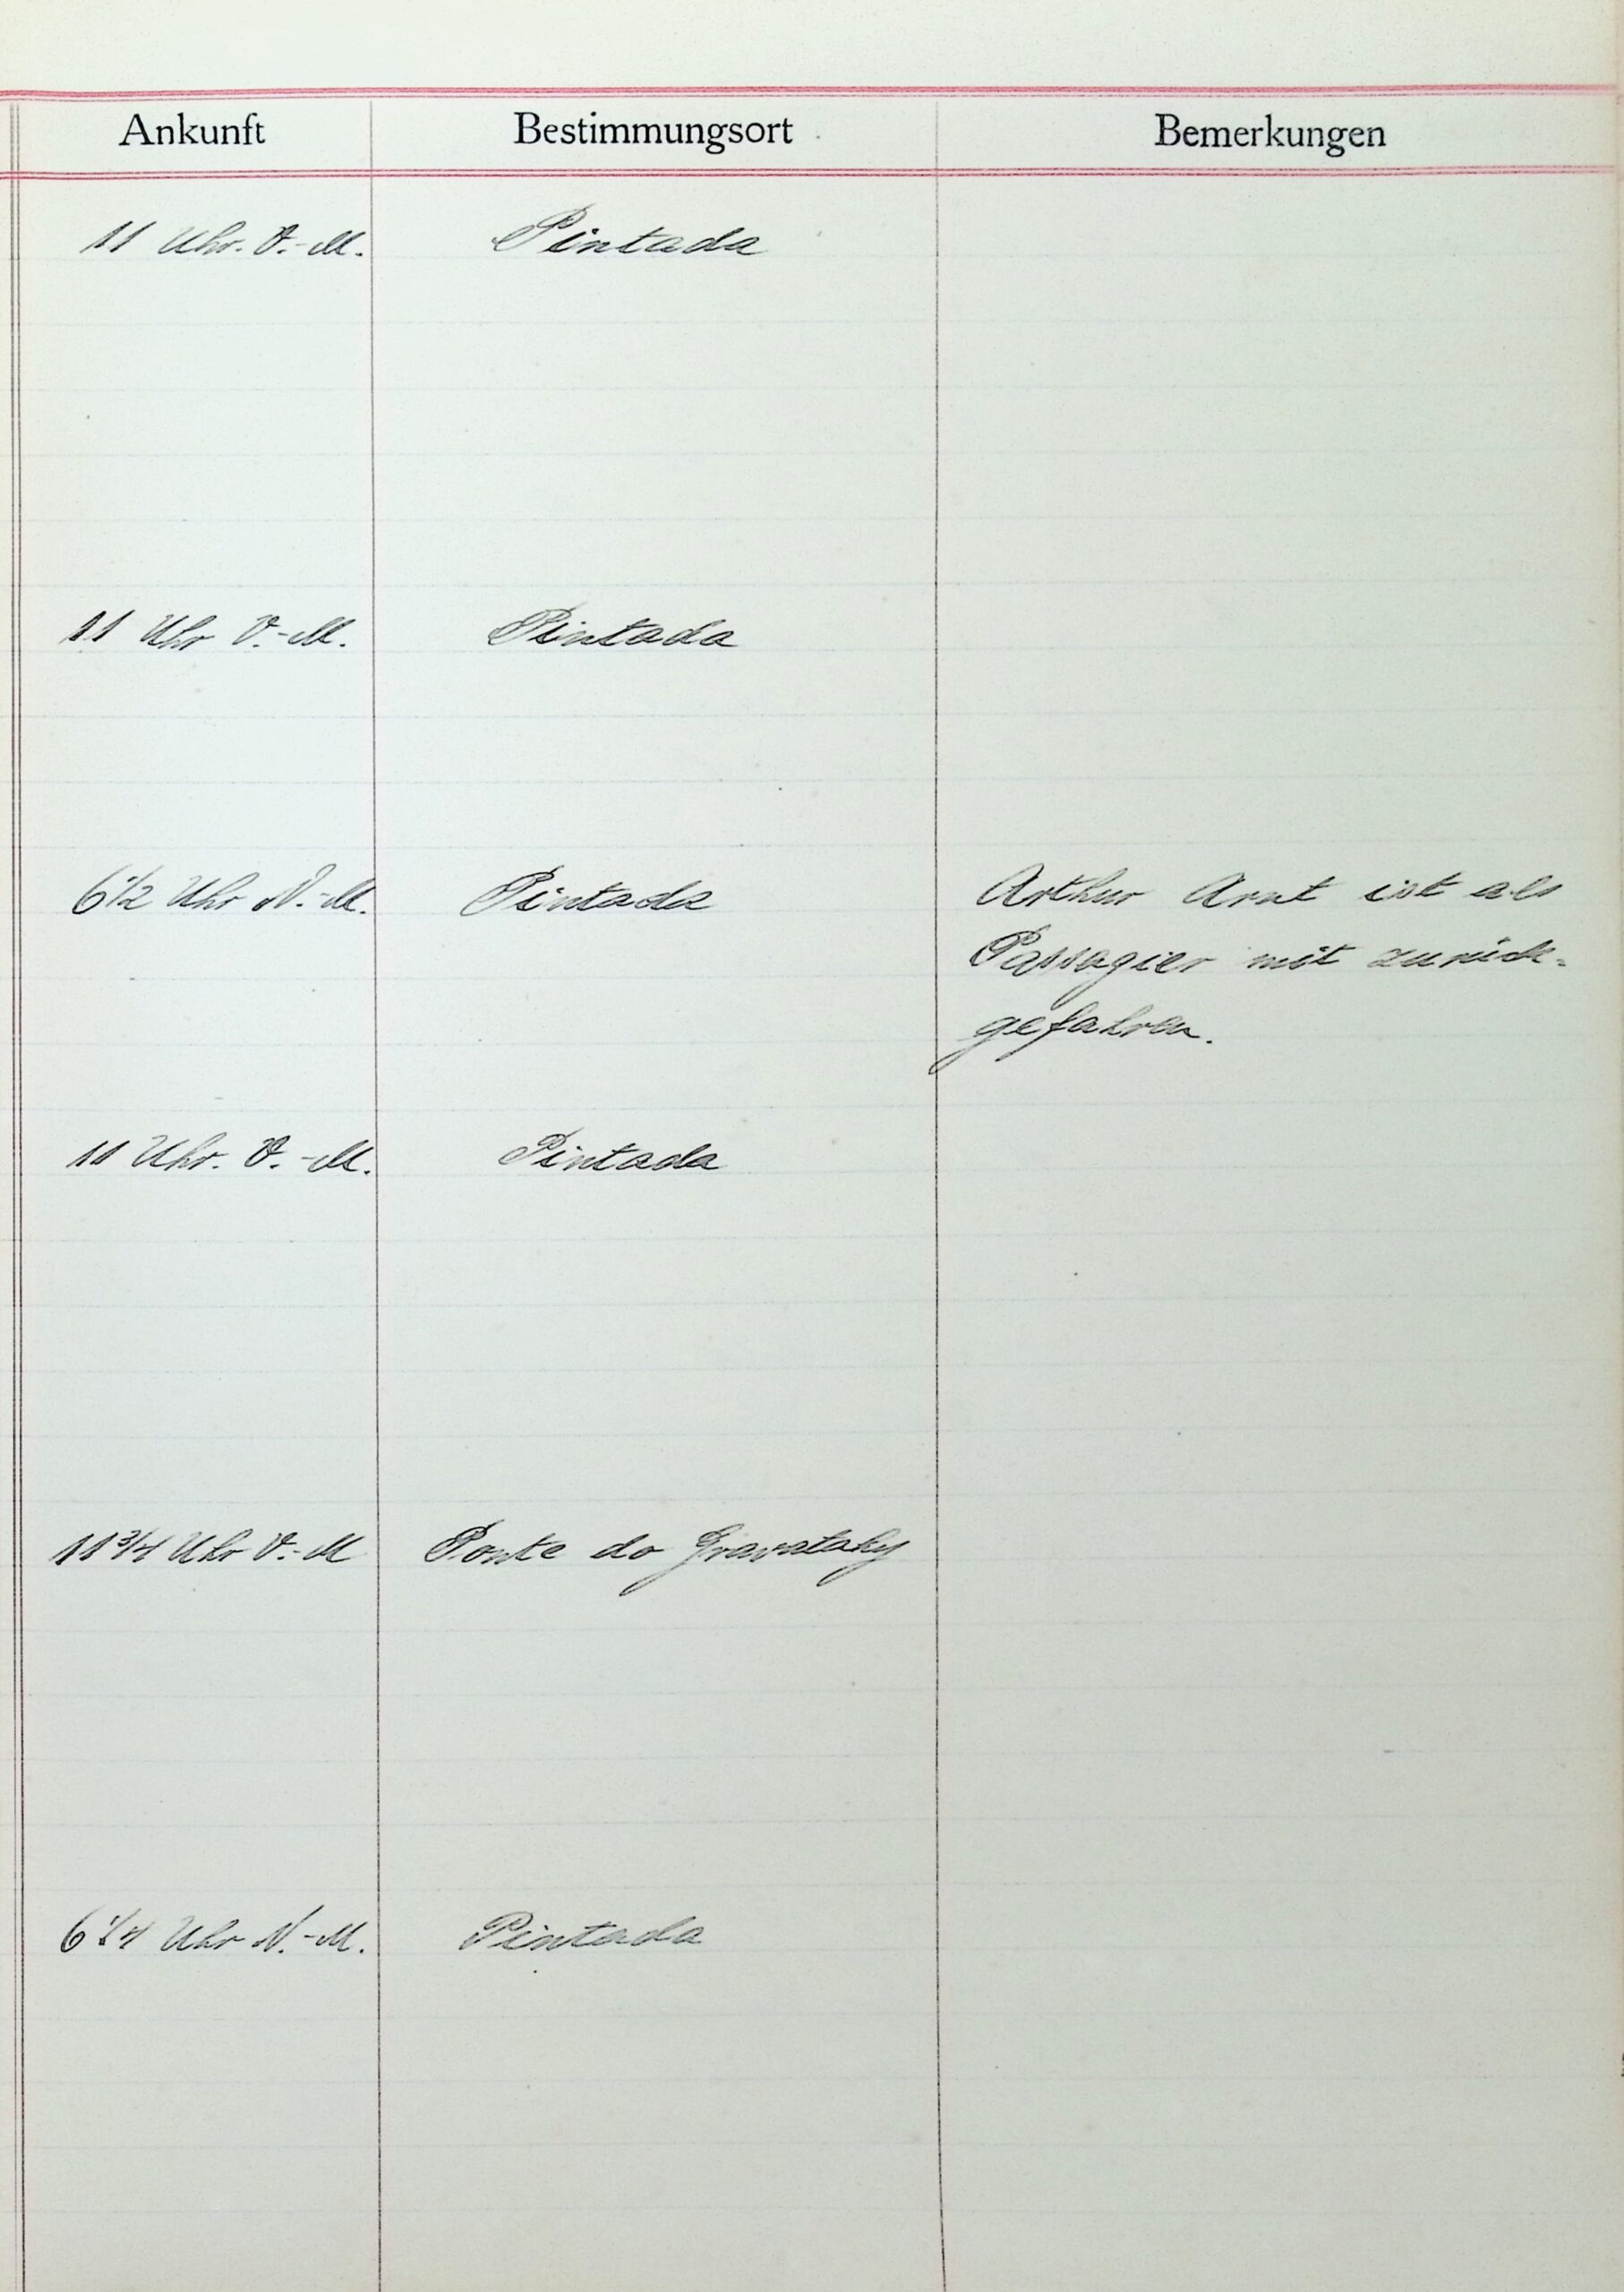 Ankunft Bestimmungsort Bemerkungen
11 Uhr. V.-M. Pintada
11 Uhr V.-M. Pintada
6 1/2 Uhr N.-M. Pintada Arthur Arnt ist als
Passagier mit zurück-
gefahren.
11 Uhr. V.-M. Pintada
11 3/4 Uhr V.-M Ponte do Gravatahy
6 1/4 Uhr N.-M. Pintada